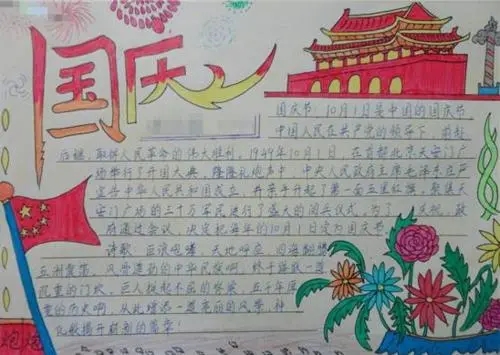 国庆
国庆节:10月1日是中国的国庆节
中国人民在共产党的领导下,前赴
后继,取得人民革命的伟大胜利,1949年10月1日,在首都北京天安门广
场举行了开国大典,隆隆礼炮声中,中央人民政府主席毛泽东庄严
宣告中华人民共和国成立,并亲手升起了第一面五星红旗,聚集天
安门广场的三十万军民进行了盛大的阅兵仪式,为了 庆祝,政
府通过会议,决定把每年的10月1日定为国庆节。
诗歌:巨浪咆哮 天地呼应 四海翻腾
五洲震荡,风骨遒劲的中华民族啊,终于 一道
沉重的门坎,巨人挺起不屈的脊梁,五千年厚
重的历史啊,从此增添一道亮丽的风景,神
龙 揭开崭新的篇章!
炮